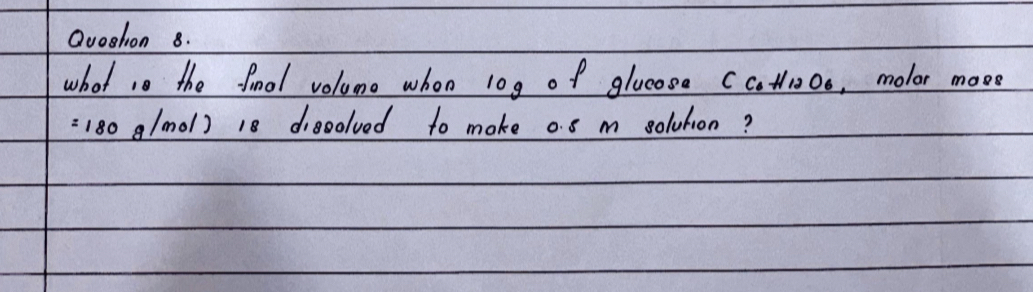 Question 8.
what is the final volume when 10g of glucose ( C6H12O6, molar mass
=180 g/mol) is dissolved to make 0.5 m solution ?